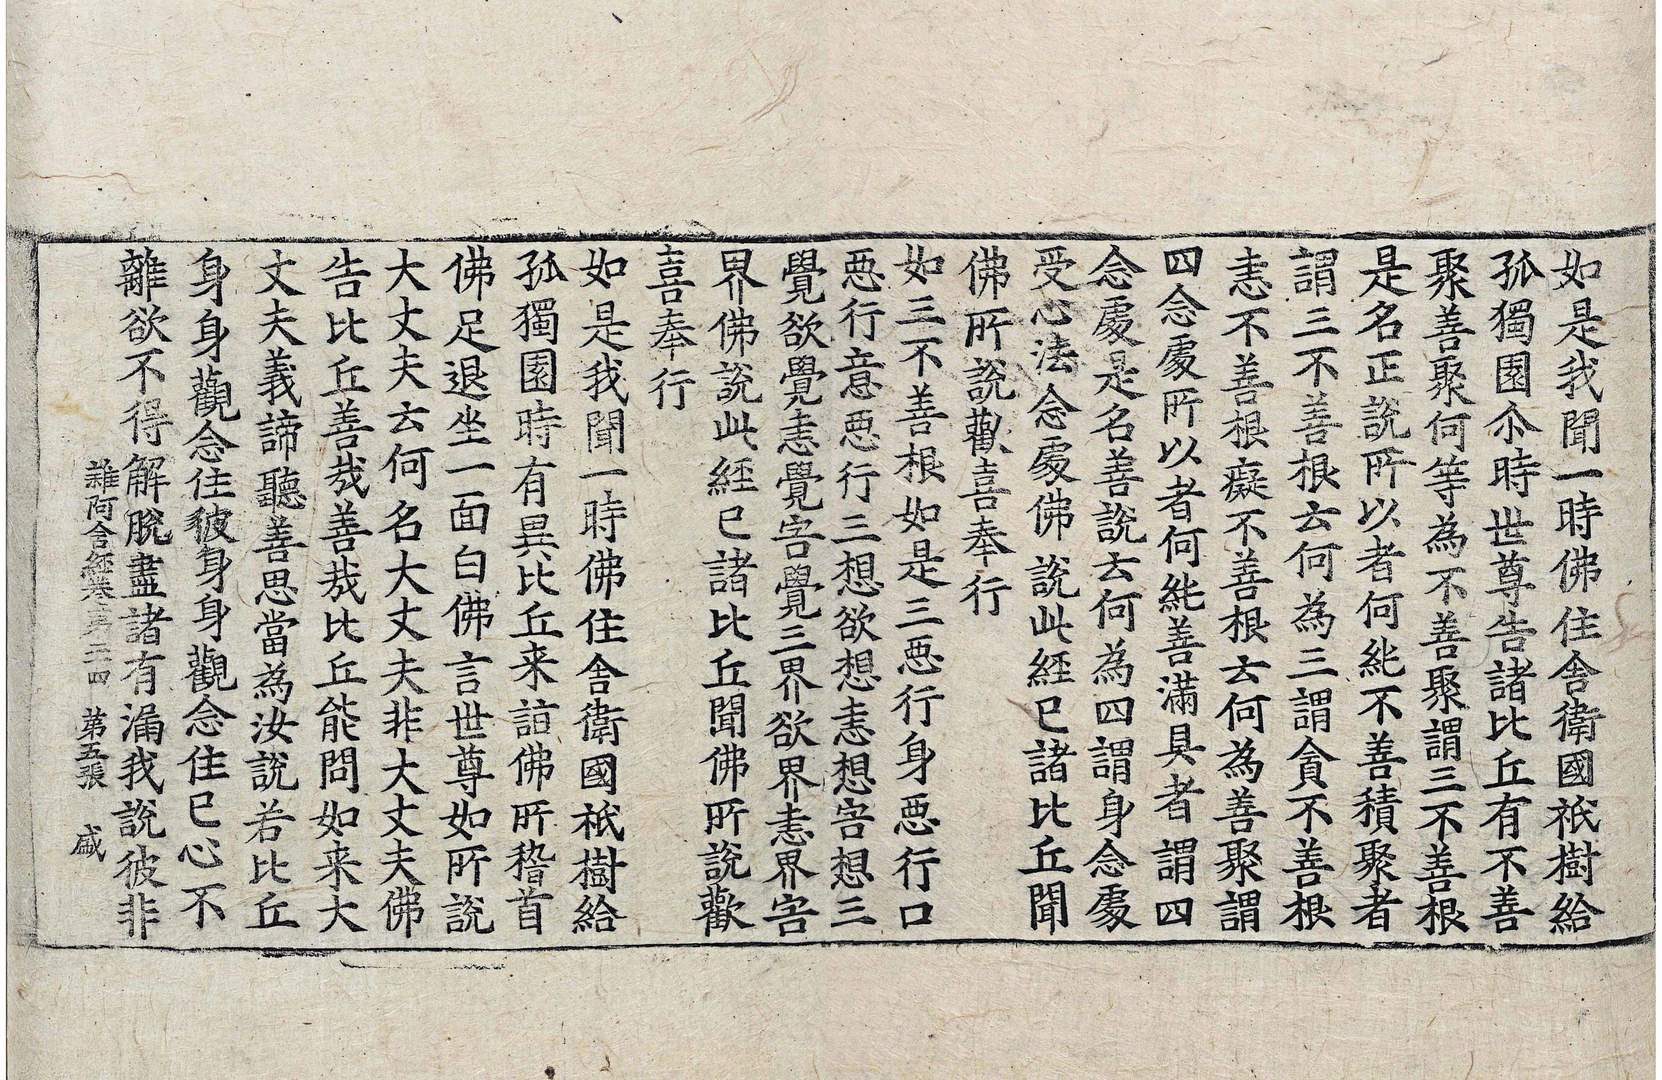 如是我聞一時佛住舍衛國祇樹給
孤獨園尒時世尊告諸比丘有不善
聚善聚何等為不善聚謂三不善根
是名正說所以者何純不善積聚者
謂三不善根云何為三謂貪不善根
恚不善根癡不善根云何為善聚謂
四念處所以者何純善滿具者謂四
念處是名善說云何為四謂身念處
受心法念處佛說此經已諸比丘聞
佛所說歡喜奉行
如三不善根如是三惡行身惡行口
惡行意惡行三想欲想恚想害想三
覺欲覺恚覺害覺三界欲界恚界害
界佛說此經已諸比丘聞佛所說歡
喜奉行
如是我聞一時佛住舍衛國祇樹給
孤獨園時有異比丘来詣佛所稽首
佛足退坐一面白佛言世尊如所說
大丈夫云何名大丈夫非大丈夫佛
告比丘善哉善哉比丘能問如来大
丈夫義諦聽善思當為汝說若比丘
身身觀念住彼身身觀念住已心不
離欲不得解脫盡諸有漏我說彼非
雜阿含經卷第二十四 第五張 盛